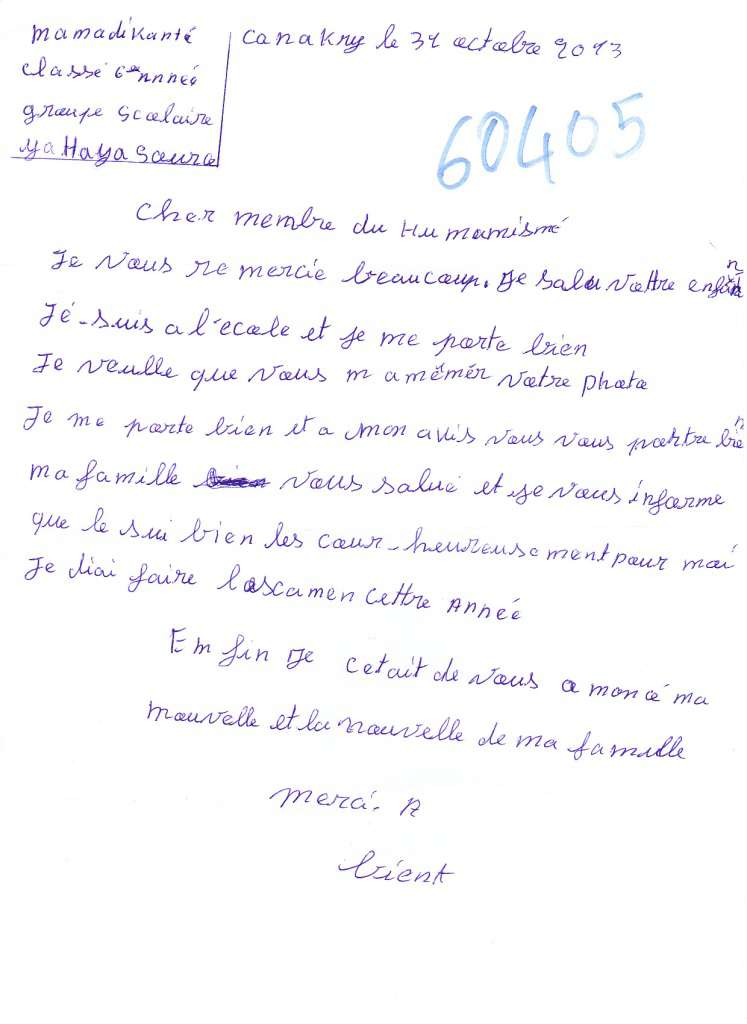 Mamadi Kanté
Canakry le 31 octobre 2013
classé 6e Année
groupe Scolaire
ya Haya Soura
60405
Cher membre du Humamismé
Je Vous re mercie beaucoup. Je salu Vottre enfan
Jé-suis a l'ecole et je me porte bien
Je veulle que Vous m amémér Votre phota
Je me porte bien et a mon avis vous vous porttre bien
ma famille Vous salué et je vous informe
que le sui bien les cour-heureusement pour moi
Je diai faire l'oscamen Cettre Année
Em fin Je cetait de Vous a moncé ma
nouvelle et la nouvelle de ma famille
merci. A
bient